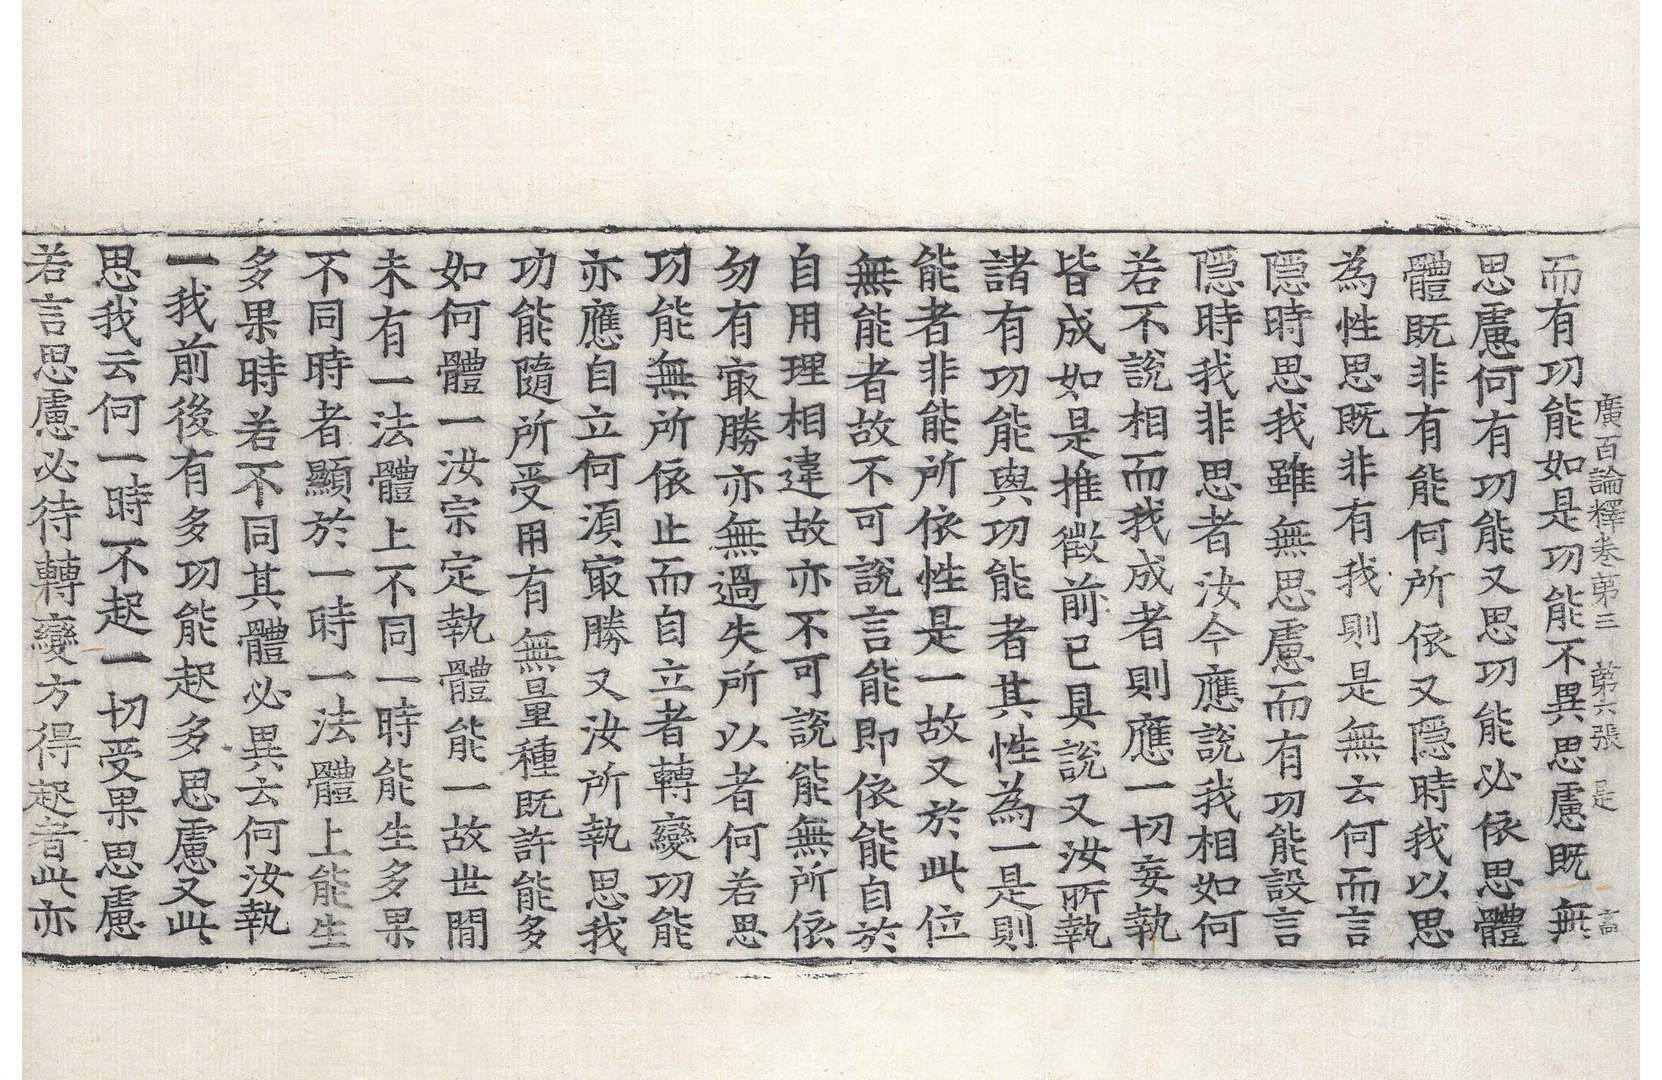 廣百論釋卷第三 第六張 是 高
而有功能如是功能不異思慮既無
思慮何有功能又思功能必依思體
體既非有能何所依又隱時我以思
為性思既非有我則是無云何而言
隱時思我雖無思慮而有功能設言
隱時我非思者汝今應說我相如何
若不說相而我成者則應一切妄執
皆成如是推徵前已具說又汝所執
諸有功能與功能者其性為一是則
能者非能所依性是一故又於此位
無能者故不可說言能即依能自於
自用理相違故亦不可說能無所依
勿有㝡勝亦無過失所以者何若思
功能無所依止而自立者轉變功能
亦應自立何湏㝡勝又汝所執思我
功能隨所受用有無量種既許能多
如何體一汝宗定執體能一故世閒
未有一法體上不同一時能生多果
不同時者顯於一時一法體上能生
多果時若不同其體必異云何汝執
一我前後有多功能起多思慮又此
思我云何一時不起一切受果思慮
若言思慮必待轉變方得起者此亦